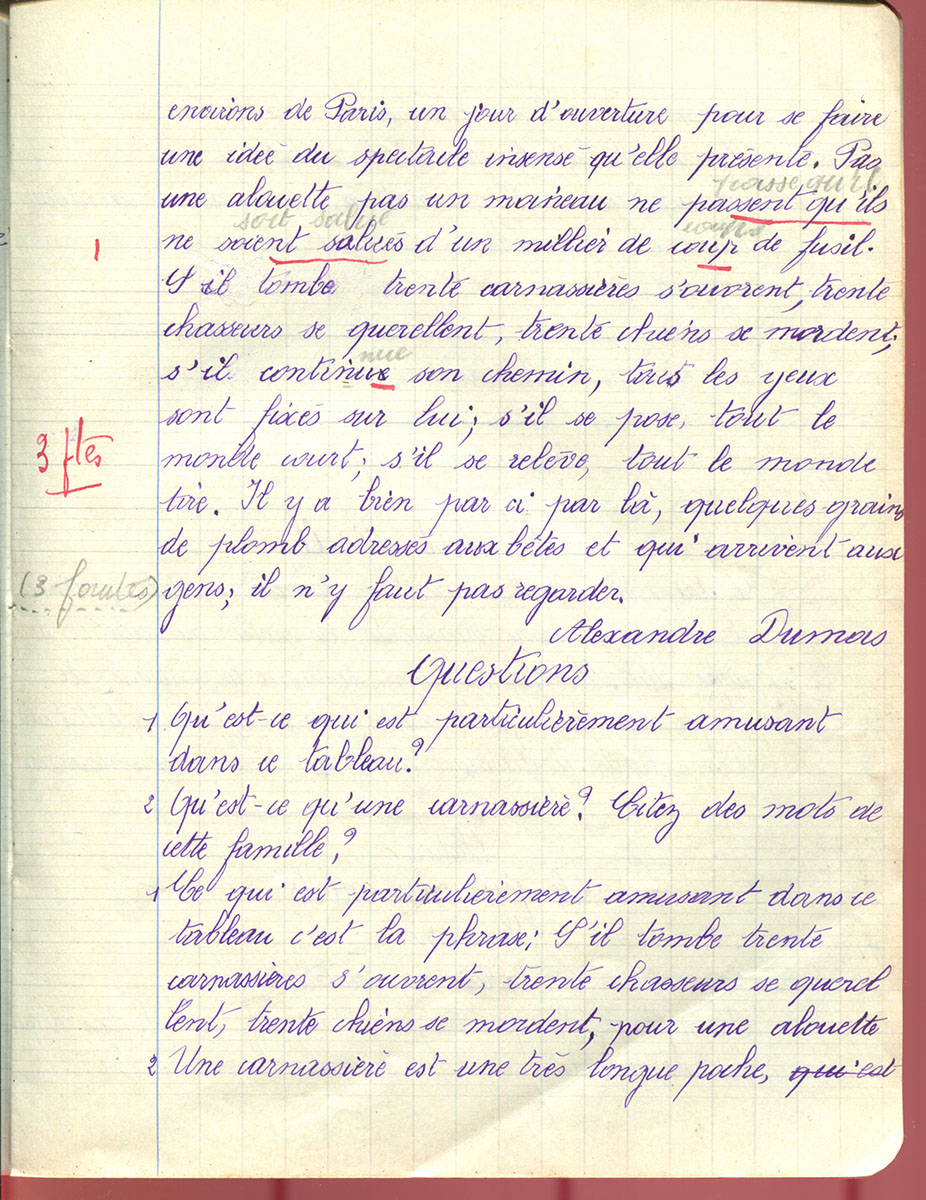 environs de Paris, un jour d'ouverture pour se faire
une idée du spectacle insensé qu'elle présente. Pas
passe qu'il
une alouette pas un moineau ne passent qu'ils
soit salué
coups
1
ne soient salués d'un millier de coup de fusil.
S'il tombe trente carnassières s'ouvrent, trente
chasseurs se querellent, trente chiens se mordent;
nue
s'il continue son chemin, tous les yeux
sont fixés sur lui; s'il se pose, tout le
3 ftes
monde court; s'il se relève, tout le monde
tire. Il y a bien par ci par là, quelques grains
de plomb adressés aux bêtes et qui arrivent aux
(3 fautes)
gens; il n'y faut pas regarder.
Alexandre Dumas
Questions
1 Qu'est-ce qui est particulièrement amusant
dans ce tableau?
2 Qu'est-ce qu'une carnassière? Citez des mots de
cette famille?
1 Ce qui est particulièrement amusant dans ce
tableau c'est la phrase; S'il tombe trente
carnassières s'ouvrent, trente chasseurs se querel
lent, trente chiens se mordent, pour une alouette
2 Une carnassière est une très longue poche, qui est